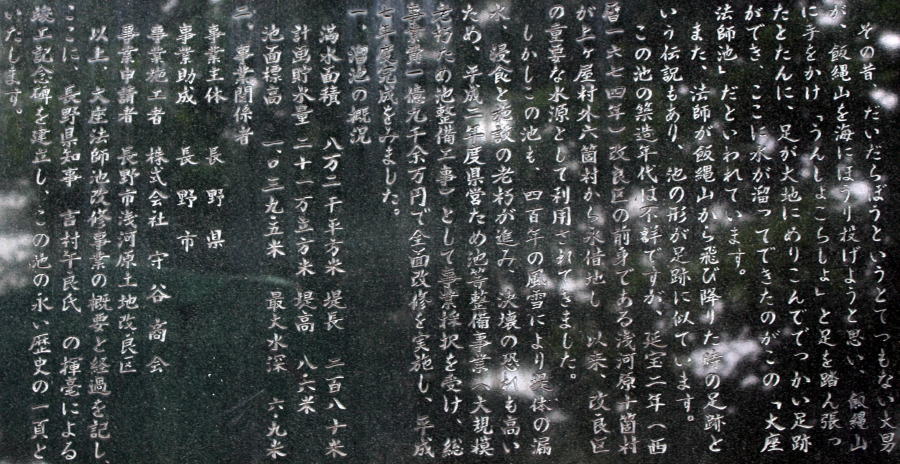 その昔、だいだらぼうというとてつもない大男
が、飯縄山を海にほうり投げようと思い、飯縄山
に手をかけ「うんしょこらしょ」と足を踏ん張っ
たとたんに、足が大地にめりこんででっかい足跡
ができ、ここに水が溜ってできたのがこの「大座
法師池」だといわれています。
また、法師が飯縄山から飛び降りた時の足跡と
いう伝説もあり、池の形が足跡に似ています。
この池の築造年代は不詳ですが、延宝二年(西
暦一六七四年)改良区の前身である浅河原十箇村
が上ヶ屋村外六箇村から永借地し、以来、改良区
の重要な水源として利用されてきました。
しかしこの池も、四百年の風雪により堤体の漏
水、浸食と施設の老朽が進み、決壊の恐れも高い
ため、平成二年度県営ため池等整備事業(大規模
老朽ため池整備工事)として事業採択を受け、総
事業費一億九千余万円で全面改修を実施し、平成
七年度完成をみました。
一、溜池の概況
満水面積 八万二千平方米 堤長 二百八十米
計画貯水量 二十一万立方米 堤高 八・六米
池面標高 一〇三九・五米 最大水深 六・九米
二、事業関係者
事業主体 長野県
事業助成 長野市
事業施工者 株式会社 守谷商会
事業申請者 長野市浅河原土地改良区
以上、大座法師池改修事業の概要と経過を記し、
ここに、長野県知事 吉村午良氏 の揮毫による
竣工記念碑を建立し、この池の永い歴史の一頁と
いたします。